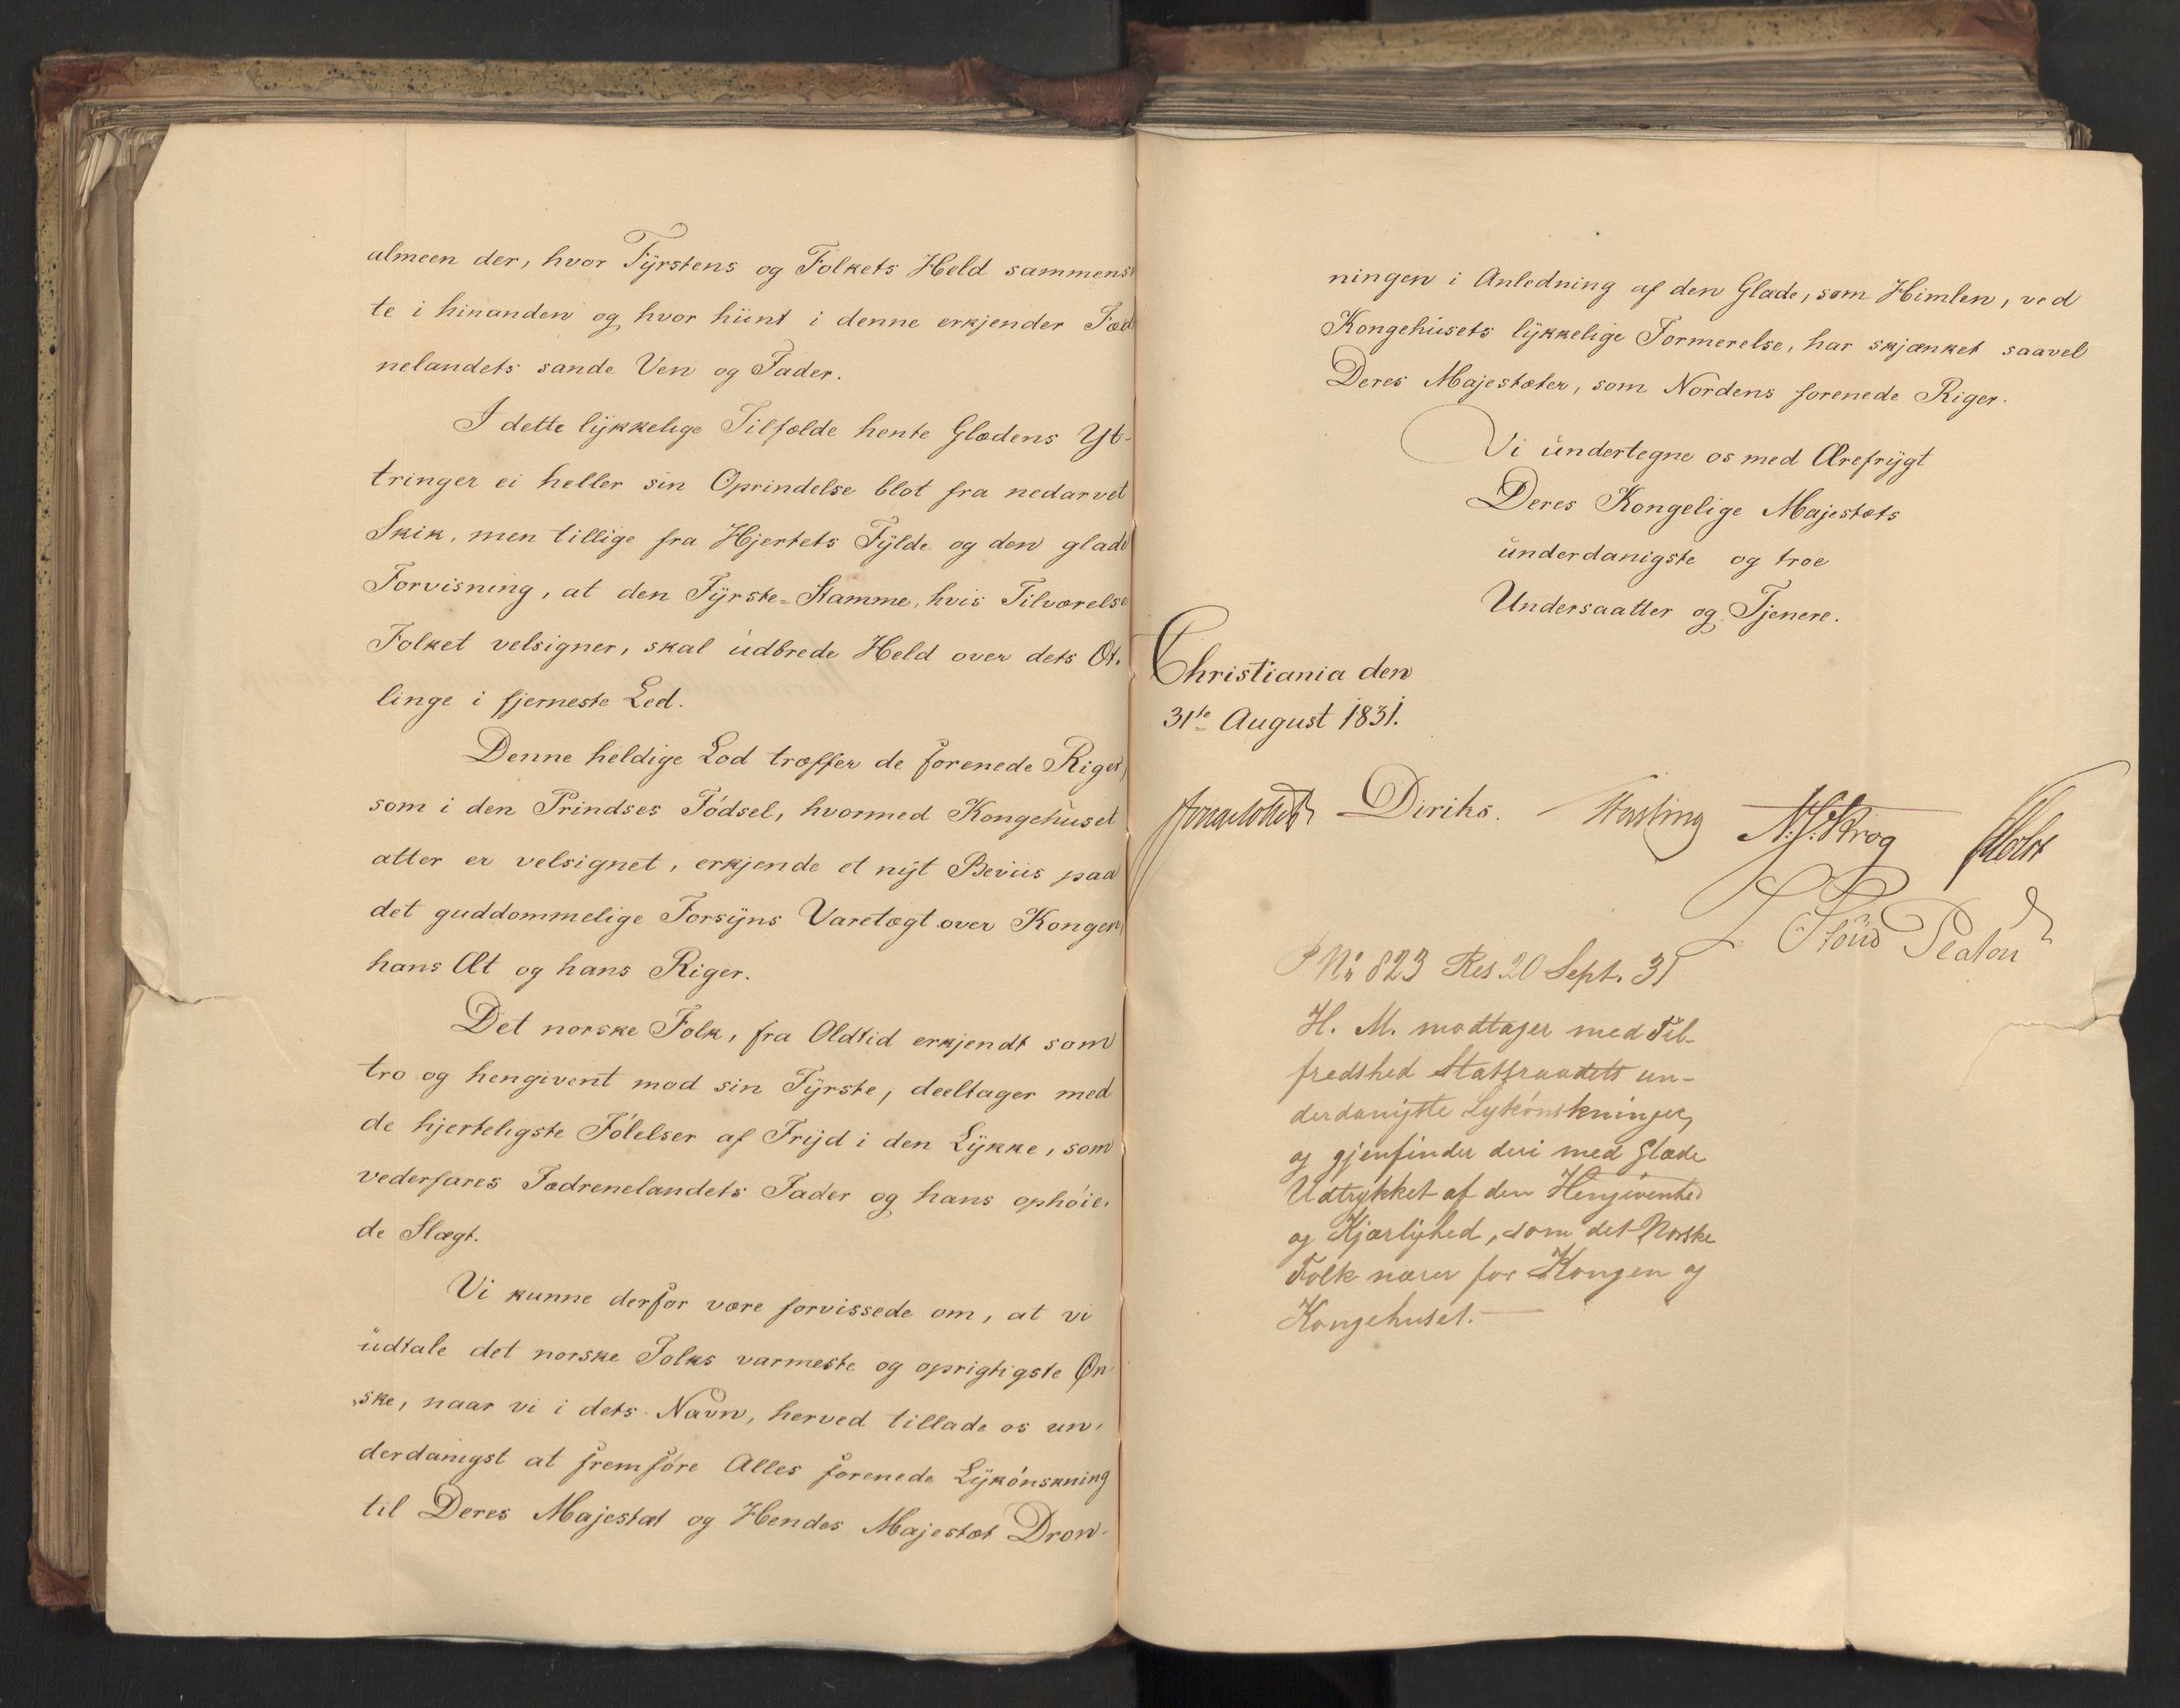 almeen der, hvor Fÿrstens og Folkets Held sammens
te i hinanden og hvor hiint i denne erkjender Fæd
nelandets sande Ven og Fader.
I dette lÿkkelige Tilfælde hente Glædens Yt-
tringer ei heller sin Oprindelse blot fra nedarvet
Skik, men tillige fra Hjertets Fÿlde og den glade
Forvisning, at den Fÿrste-Stamme, hvis Tilværelse
Folket velsigner, skal udbrede Held over dets Æt-
linge i fjerneste Led.
Denne heldige Lod træffer de forenede Riger,
som i den Prindses Födsel, hvormed Kongehuset
atter er velsignet, erkjende et nÿt Beviis paa
det guddommelige Forsÿns Varetægt over Kongen,
hans Æt og hans Riger.
Det norske Folk, fra Oldtid erkjendt som
tro og hengivent mod sin Fÿrste, deeltager med
de hjerteligste Fölelser af Frÿd i den Lÿkke, som
vederfares Fædrenelandets Fader og hans ophöie-
de Slægt.
Vi kunne derfor være forvissede om, at vi
udtale det norske Folks varmeste og oprigtigste Øn
ske, naar vi i dets Navn, herved tillade os un-
derdanigst at fremföre Alles forenede Lÿkönskning
til Deres Majestæt og Hendes Majestæt Dron-
ningen i Anledning af den Glæde, som Himlen, ved
Kongehusets lÿkkelige Formerelse, har skjænket saavel
Deres Majestæter, som Nordens forenede Riger.
Vi undertegne os med Ærefrÿgt
Deres Kongelige Majestæts
underdanigste og troe
Undersaatter og Tjenere.
Christiania den
31te August 1831.
Diriks. N. J. Krog
Platou
P No 823 Res 20 Sept. 31
H. M. modtager med Til-
fredshed Statsraadets un-
derdanigste Lykönskninger,
og gjenfinder deri med Glæde
Udtrykket af den Hengivenhed
og Kjærlighed, som det Norske
Folk nærer for Kongen og
Kongehuset.